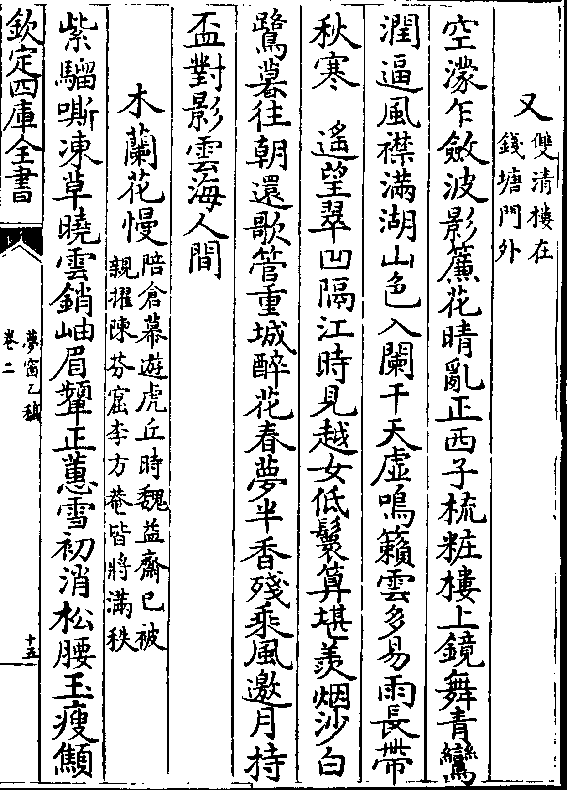 又雙清樓在
錢塘門外
空濛乍斂波影簾花晴亂正西子梳粧樓上鏡舞青鸞
潤逼風襟滿湖山色入闌干天虛鳴籟雲多易雨長帶
秋寒　遙望翠凹隔江時見越女低鬟算堪羨烟沙白
鷺暮往朝還歌管重城醉花春夢半香殘乘風邀月持
盃對影雲海人間
木蘭花慢陪倉幕遊虎丘時魏益齋已被
親擢陳芬窟李方菴皆將滿秩
紫騮嘶凍草曉雲銷岫眉顰正蕙雪初消松腰玉瘦顦
欽定四庫全書
夢窗乙稿
卷二
十五